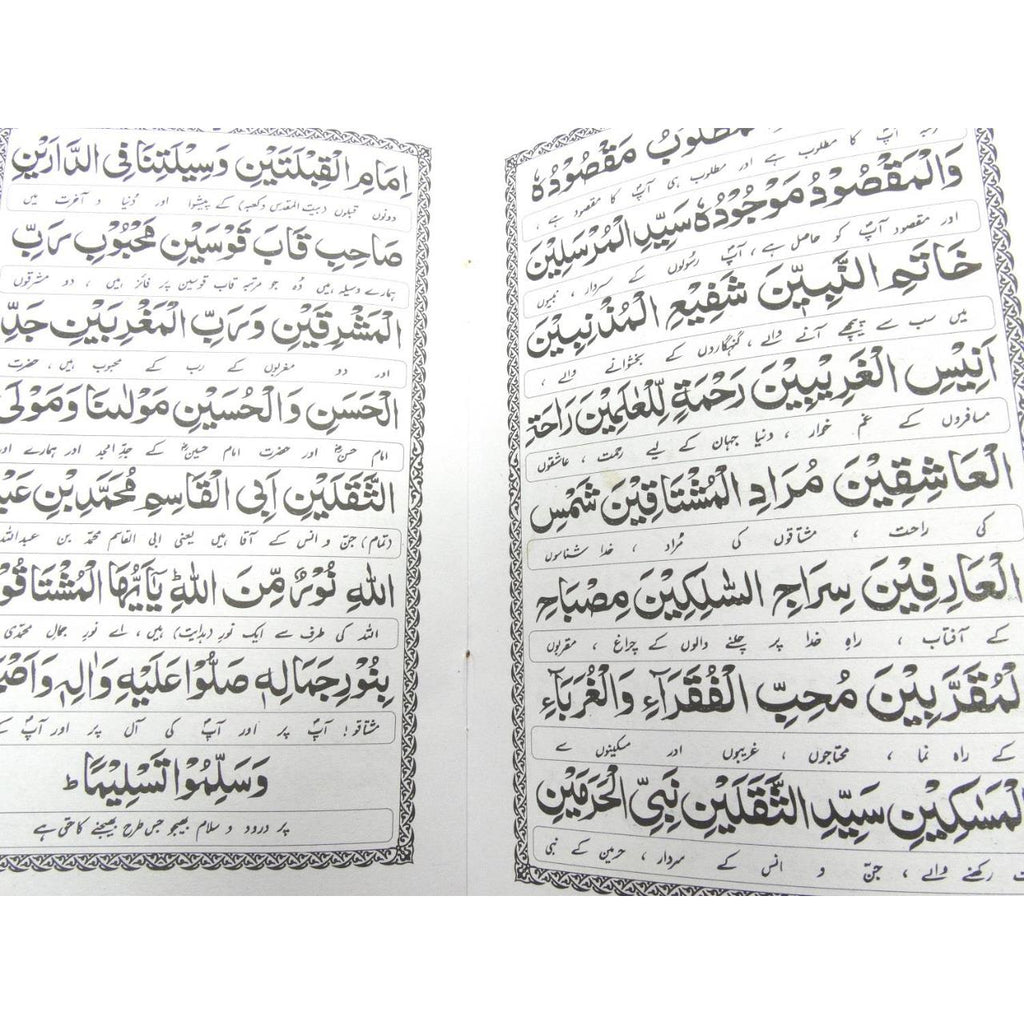 مَطْلُوْبُ مَقْصُوْدُهٗ
آپؐ کا مطلوب ہے اور مطلوب ہی آپؐ کا مقصود ہے ،
وَالْمَقْصُوْدُ مَوْجُوْدُهٗ سَيِّدِ الْمُرْسَلِيْنَ
اور مقصود آپؐ کو حاصل ہے ، آپؐ رسولوں کے سردار ، نبیوں
خَاتَمِ النَّبِيّٖنَ شَفِيْعِ الْمُذْنِبِيْنَ
میں سب سے پیچھے آنے والے ، گنہگاروں کے بخشوانے والے ،
اَنِيْسِ الْغَرِيْبِيْنَ رَحْمَةٍ لِّلْعٰلَمِيْنَ رَاحَةِ
مسافروں کے غم خوار ، دنیا جہان کے لیے رحمت ، عاشقوں
الْعَاشِقِيْنَ مُرَادِ الْمُشْتَاقِيْنَ شَمْسِ
کی راحت ، مشتاقوں کی مُراد ، خدا شناسوں
الْعَارِفِيْنَ سِرَاجِ السّٰلِكِيْنَ مِصْبَاحِ
کے آفتاب ، راہِ خدا پر چلنے والوں کے چراغ ، مقربوں
الْمُقَرَّبِيْنَ مُحِبِّ الْفُقَرَآءِ وَالْغُرَبَآءِ
کے راہ نما ، محتاجوں ، غریبوں اور مسکینوں سے
الْمَسَاكِيْنِ سَيِّدِ الثَّقَلَيْنِ نَبِيِّ الْحَرَمَيْنِ
رکھنے والے ، جنّ و انس کے سردار ، حرمین کے نبی
اِمَامِ الْقِبْلَتَيْنِ وَسِيْلَتِنَا فِى الدَّارَيْنِ
دونوں قبلوں (بیت المقدس و کعبہ) کے پیشوا اور دُنیا و آخرت میں
صَاحِبِ قَابَ قَوْسَيْنِ مَحْبُوْبِ رَبِّ
ہمارے وسیلہ ہیں وُہ جو مرتبہ قاب قوسین پر فائز ہیں ، دو مشرقوں
الْمَشْرِقَيْنِ وَرَبِّ الْمَغْرِبَيْنِ جَدِّ
اور دو مغربوں کے رب کے محبوب ہیں ، حضرت
الْحَسَنِ وَالْحُسَيْنِ مَوْلٰىنَا وَمَوْلَى
امام حسنؓ اور حضرت امام حسینؓ کے جدِّ امجد اور ہمارے اور
الثَّقَلَيْنِ اَبِى الْقَاسِمِ مُحَمَّدِ بْنِ
(تمام) جنّ و انس کے آقا ہیں یعنی ابی القاسم محمّد بن عبداللہ
اللهِ نُوْرٌ مِّنَ اللهِ يٰٓاَيُّهَا الْمُشْتَاقُوْنَ
اللہ کی طرف سے ایک نور (ہدایت) ہیں ، اے نورِ جمالِ محمّدی
بِنُوْرِ جَمَالِهٖ صَلُّوْا عَلَيْهِ وَاٰلِهٖ
مشتاقو! آپؐ پر اور آپؐ کی آل پر اور آپؐ کے
وَسَلِّمُوْا تَسْلِيْمًا ؕ
پر درود و سلام بھیجو جس طرح بھیجنے کا حق ہے